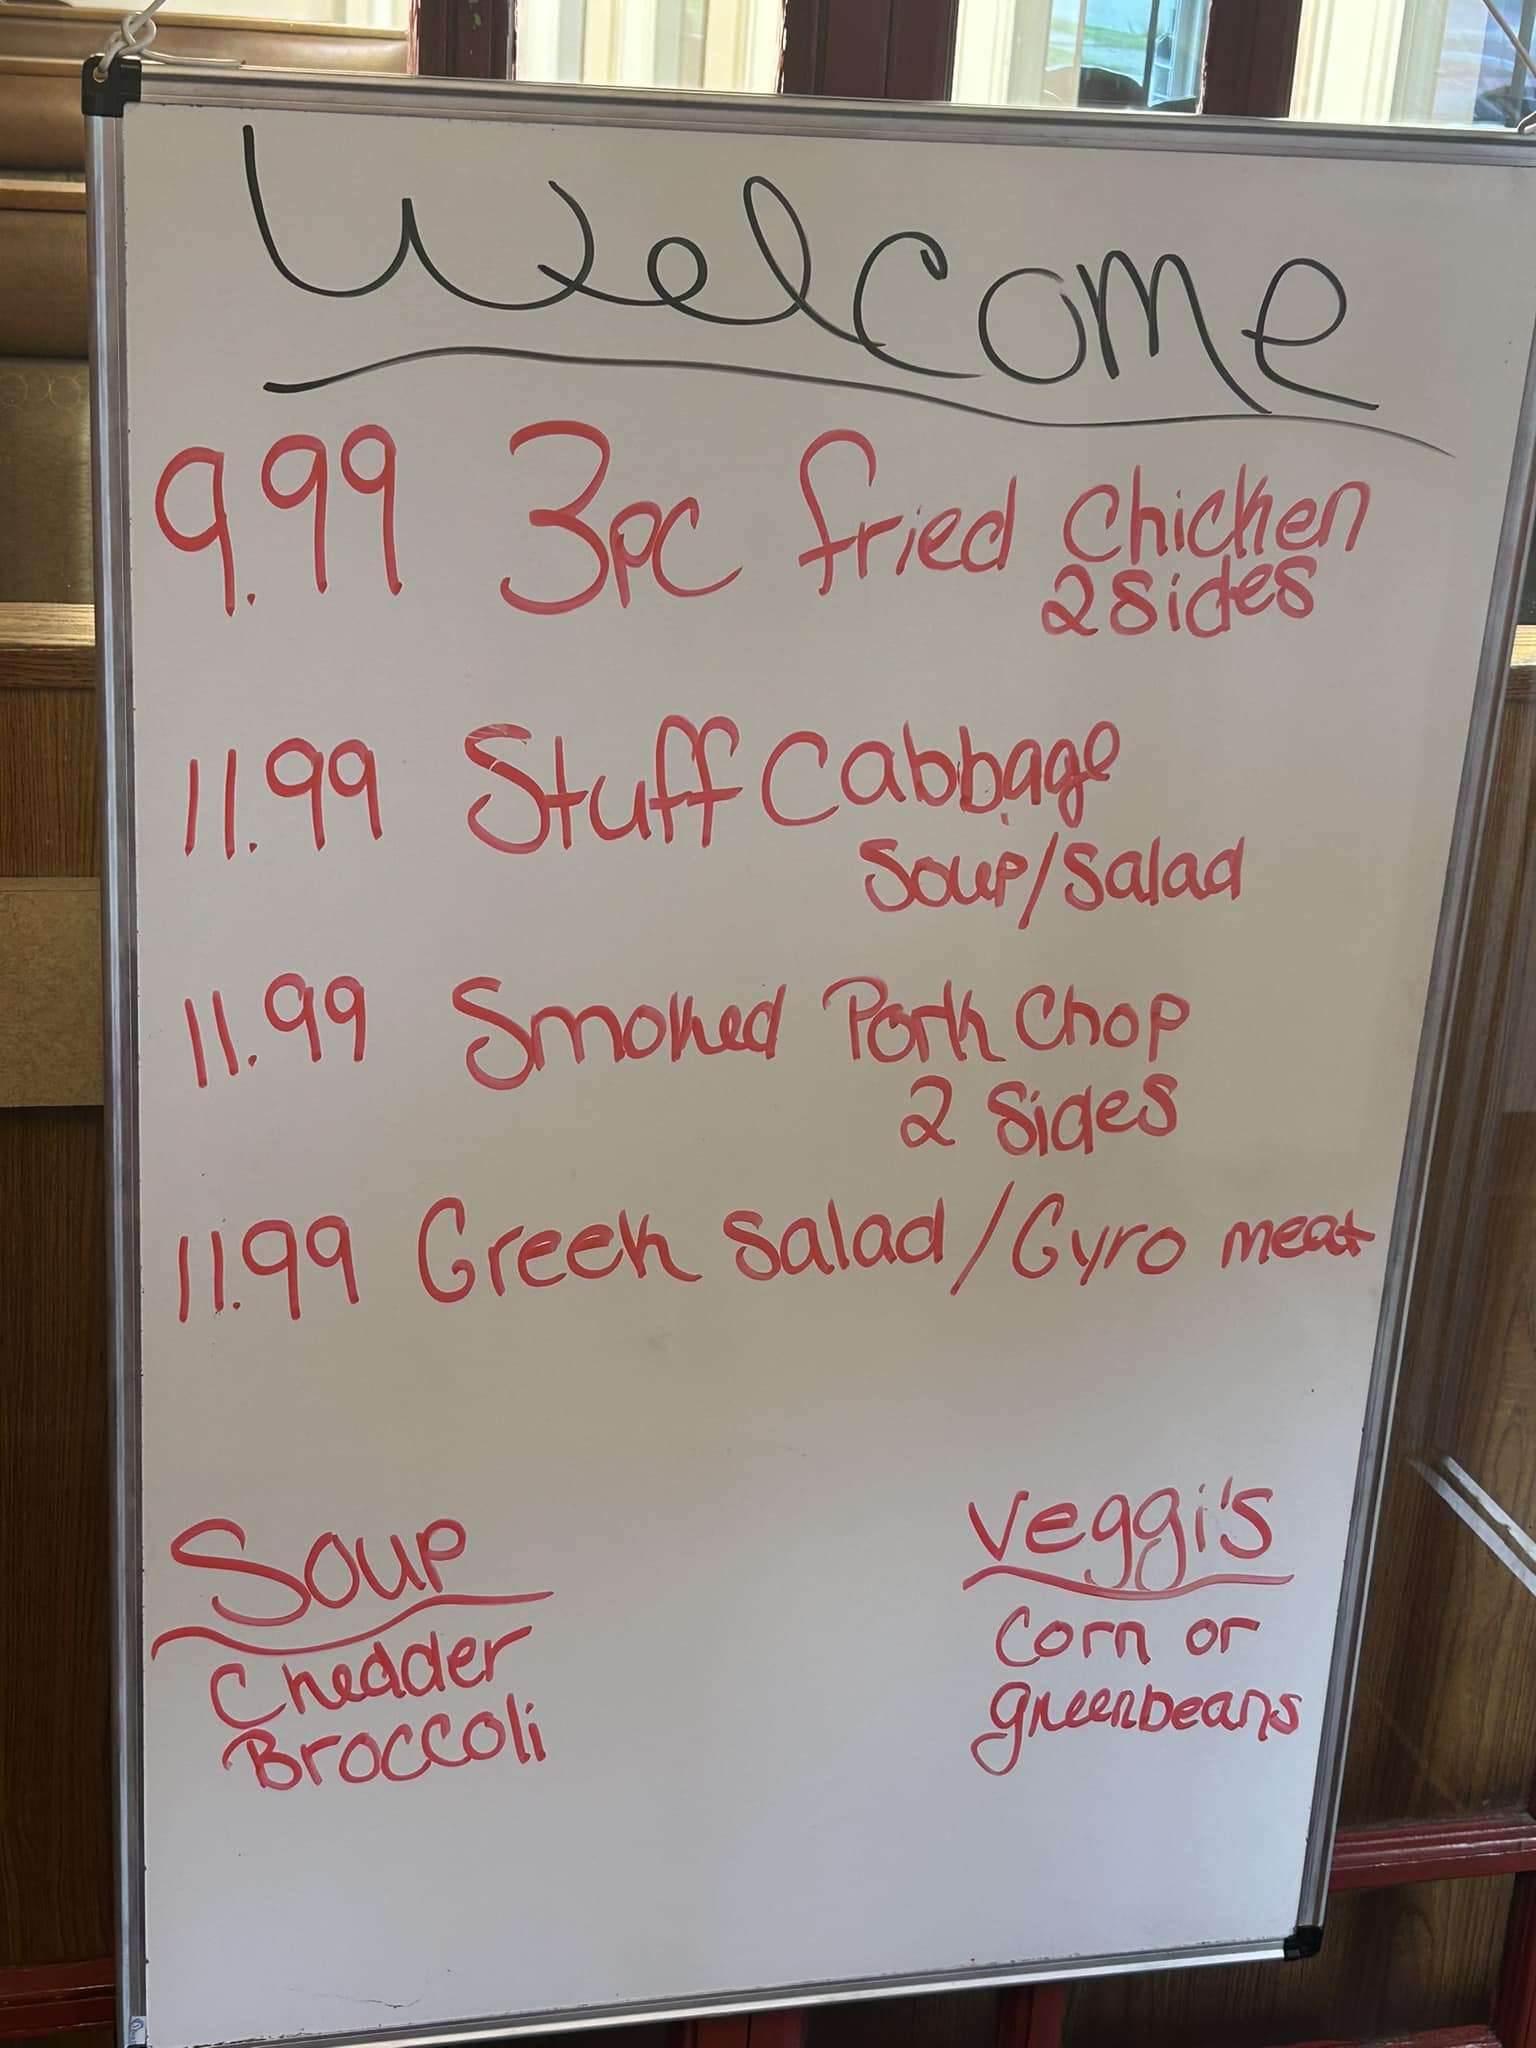 Welcome
9.99 3pc fried chicken
2 sides
11.99 Stuff Cabbage
Soup/Salad
11.99 Smoked Pork Chop
2 Sides
11.99 Greek Salad/Gyro meat
Soup
Chedder
Broccoli
Veggi's
Corn or
greenbeans